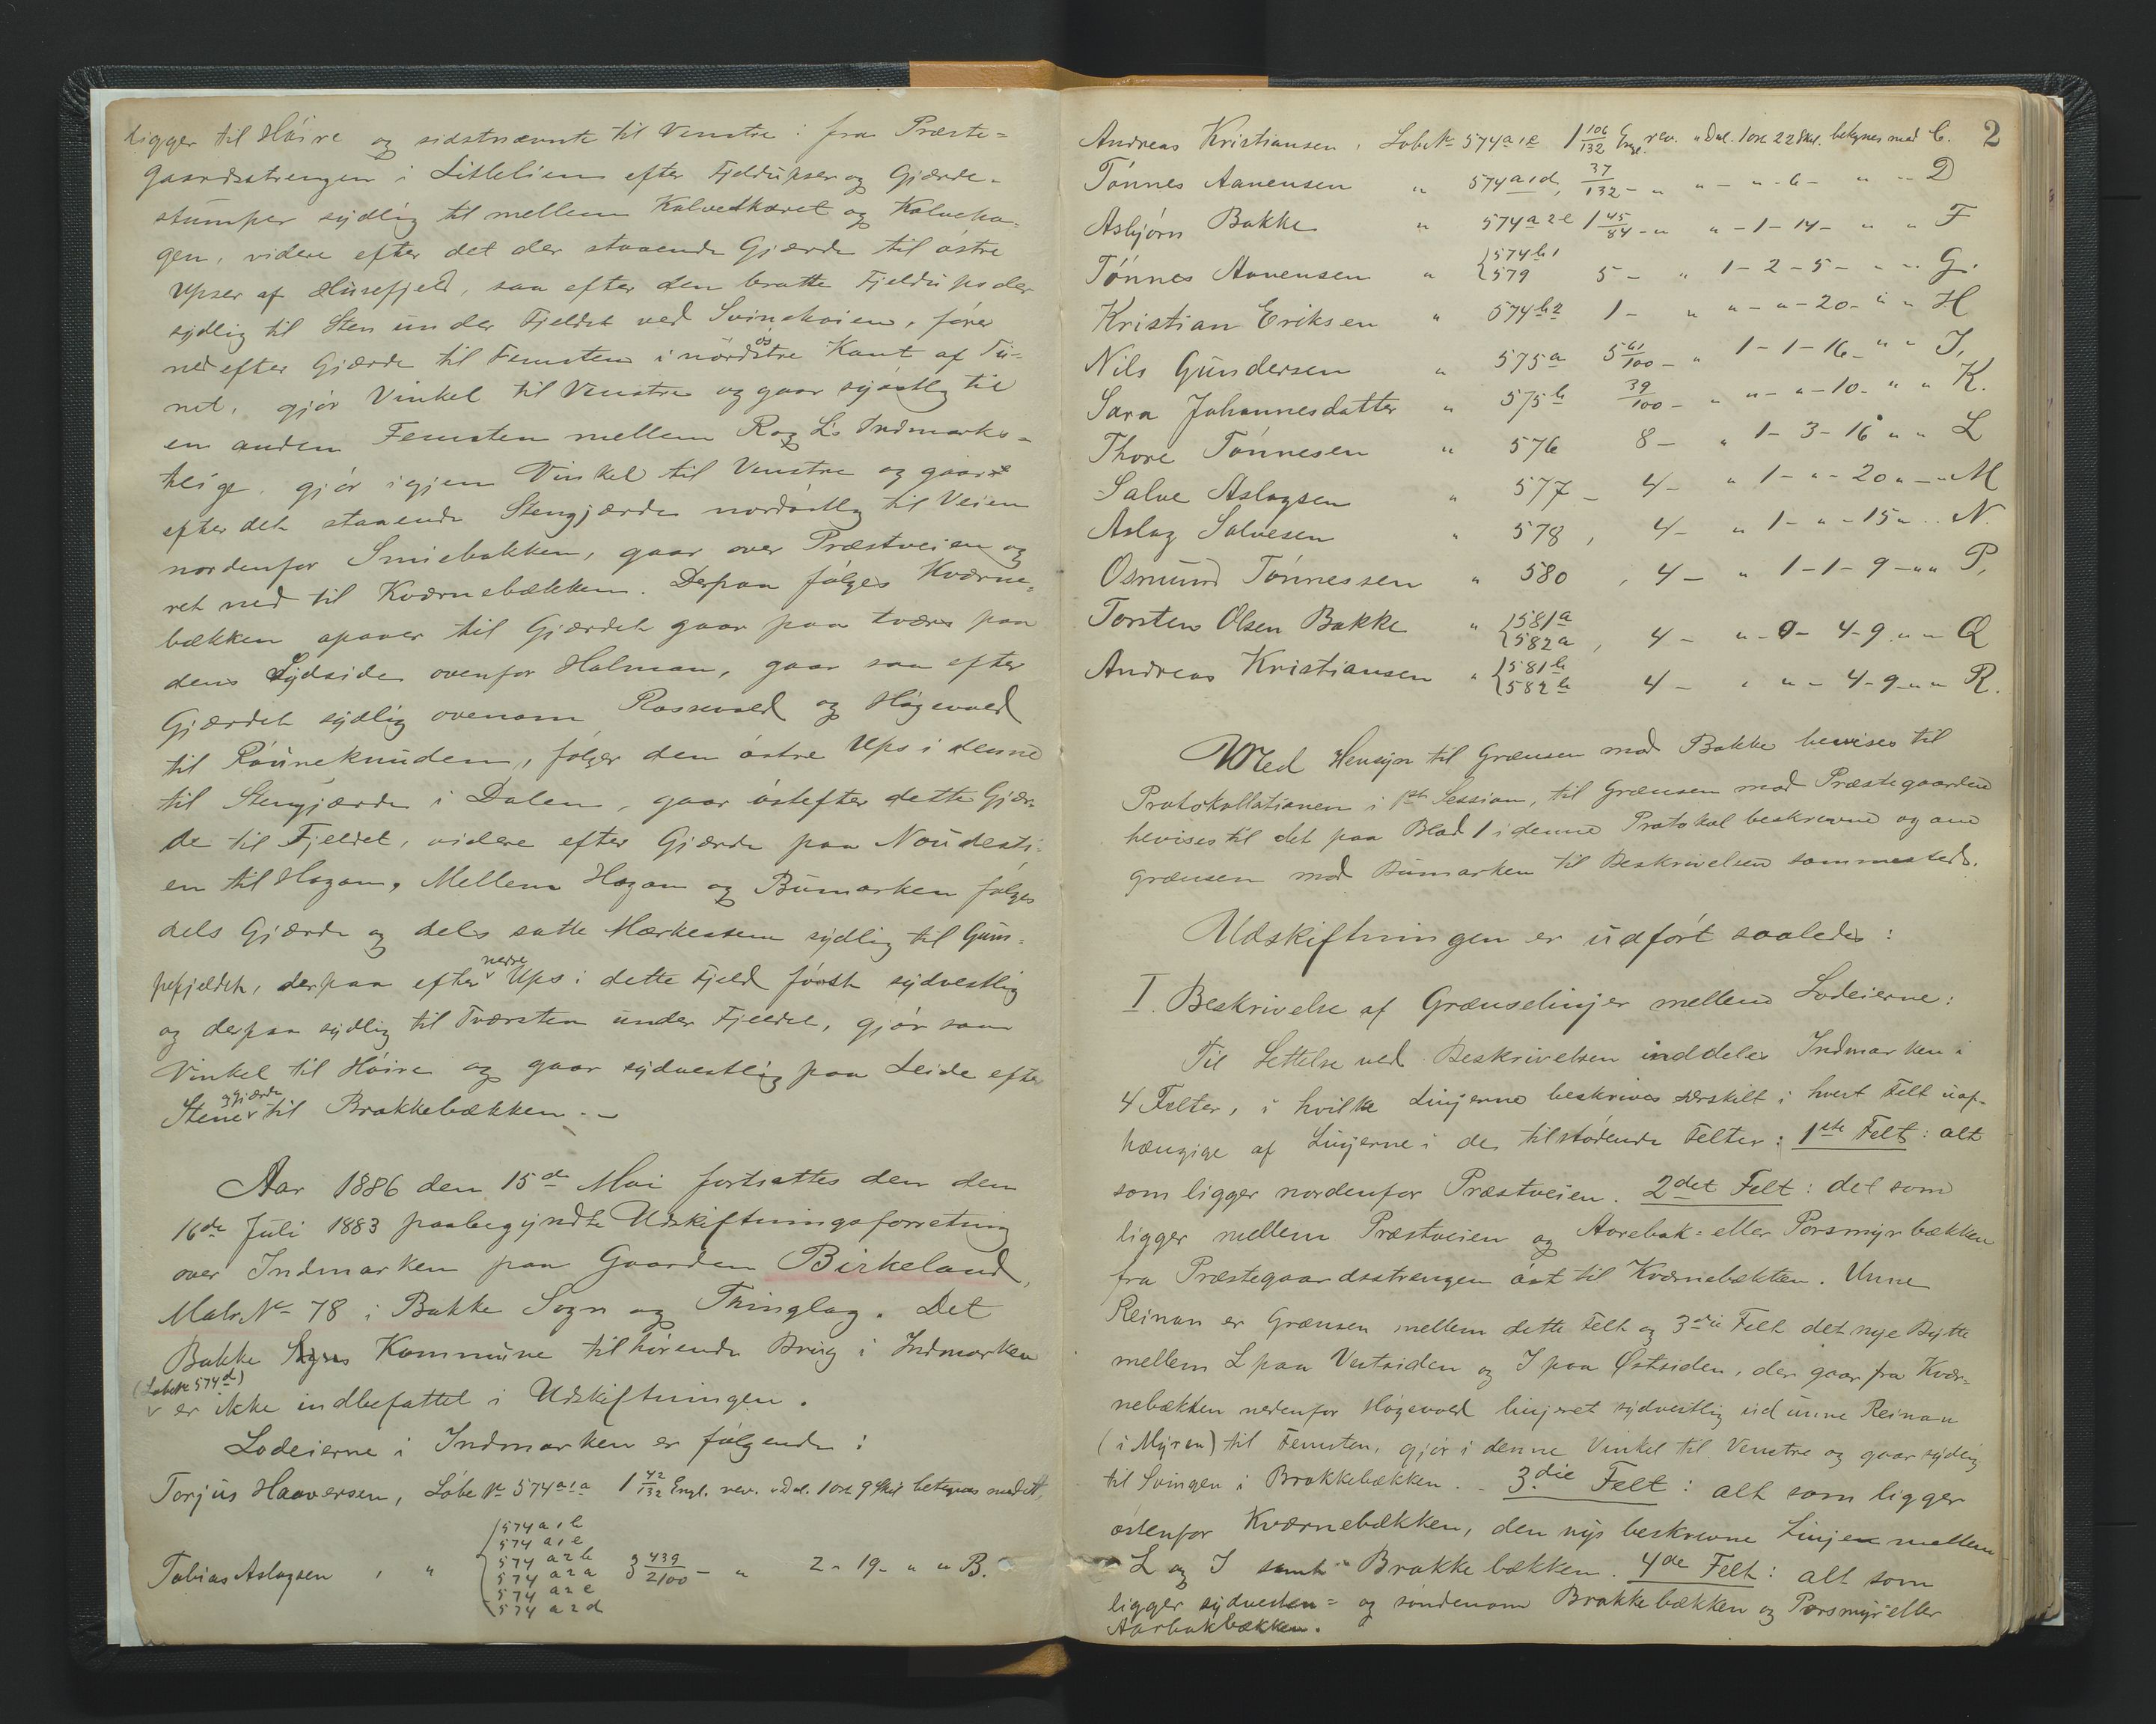 ligger til Høire og sidstnævnte til Venstre: fra Præste=
gaardsstrengen i Litleliene efter Fjeldupser og Gjærde-
stumper sydlig til mellem Kalvedkæret og Kalveha-
gen, videre efter det der staaende Gjærde til østre
Upser af Husefjeld, saa efter den bratte Fjeldups der
sydlig til Sten under Fjeldet ved Svinehoien, fører
ned efter Gjærde til Femsten i nordøstre Kant af Tu-
net, gjør Vinkel til Venstre og gaar sydostlig til
en anden Femsten mellem R og L's Indmarks-
teige, gjør igjen Vinkel til Venstre og gaar
efter det staaende Stengjærde nordøstlig til Veien
nordenfor Smiebakken, gaar over Præstveien og
ret ned til Kværnebækken. Derpaa følges Kværne-
bækken opover til Gjærdet gaar paa tværs paa
dens Sydside ovenfor Holman, gaar saa efter
Gjærdet sydlig ovenom Rossevold og Høgevold
til Røuneknuden, følger den østre Ups i denne
til Stengjærde i Dalen, gaar østefter dette Gjær-
de til Fjeldet, videre efter Gjærde paa Noudesti-
en til Hagam. Mellem Hagam og Bumarken følges
dels Gjærde og dels satte Mærkestene sydlig til Gum-
pefjeldet, derpaa efter nedre Ups i dette Fjeld først sydvestlig
og derpaa sydlig til Tværsten under Fjeldet, gjør saa
Vinkel til Høire og gaar sydvestlig paa Leide efter
Stene og gjærde til Brakkebækken. -
Aar 1886 den 15de Mai fortsattes den den
16de Juli 1883 paabegyndte Udskiftningsforretning
over Indmarken paa Gaarden Birkeland,
Matr. No 78 i Bakke Sogn og Thinglag. Det
Bakke Sogns Kommune tilhørende Brug i Indmarken
(Løbe No 574d) er ikke indbefattet i Udskiftningen.
Lodeierne i Indmarken er følgende:
Torjus Haaversen, Løbe No 574a1a 1 42/132 Engl. rev. " Dal. 1 ort 9 Skil betegnes med A,
Tobias Aslagsen , " {574 a1b 574 a1c 574 a2b 574 a2a 574 a2c 574 a2d 3 439/2100 - " 2 - 19 - " " B.
2
Andreas Kristiansen, Løbe No 574a1c 1 106/132 Enge. rev. " Dal. 1 ort 22 Skil. betegnes med C.
Tønnes Aanensen " 574a1d, 37/132 - " " - " - 6 - " " D
Asbjørn Bakke " 574a2e 1 45/84 - " " - 1 - 14 - " " F
Tønnes Aanensen " {574b1 579 5 - " 1 - 2 - 5 - " " G.
Kristian Eriksen " 574b2 1 - " " - " - 20 - " " H
Nils Gundersen " 575a 5 61/100 - " 1 - 1 - 16 - " " I,
Sara Johannesdatter " 575b 39/100 - " " - " - 10 - " " K.
Thore Tønnesen " 576 8 - " 1 - 3 - 16 " " L
Salve Aslagsen " 577 - 4 - " 1 - " - 20 " - " M
Aslag Salvesen " 578, 4 - " 1 - " - 15 " " N.
Osmund Tønnessen " 580, 4 - " 1 - 1 - 9 - " " P,
Torsten Olsen Bakke " {581a 582a, 4 - " - 0 - 4 - 9 " " Q
Andreas Kristiansen " {581b 582b 4 - " " - 4 - 9 - " " R.
Med Hensyn til Grænsen mod Bakke hevises til
Protokollationen i 1ste Session, til Grænsen mod Præstegaarden
hevises til det paa Blad 1 i denne Protokol beskrevne og om
grænsen mod Bumarken til Beskrivelsen sammesteds.
Udskiftningen er udført saaledes:
I. Beskrivelse af Grænselinjer mellem Lodeierne:
Til Lettelse ved Beskrivelsen inddeles Indmarken i
4 Felter, i hvilke Linjerne beskrives særskilt i hvert Felt uaf-
hængige af Linjerne i de tilstødende Felter: 1ste Felt: alt
som ligger nordenfor Præstveien. 2det Felt: det som
ligger mellem Præstveien og Aarebak= eller Porsmyrbækken
fra Præstegaardsstrengen øst til Kværnebækken. Unne
Reinan er Grænsen mellem dette Felt og 3die Felt det nye Bytte
mellem L paa Vestsiden og I paa Østsiden, der gaar fra Kvær-
nebækken nedenfor Høgevold linjeret sydvestlig ud unne Reinan
(i Myren) til Femsten, gjør i denne Vinkel til Venstre og gaar sydlig
til Svingen i Brakkebækken. - 3die Felt: alt som ligger
østenfor Kværnebækken, den nys beskrevne Linje mellem
L og I samt Brakkebækken. 4de Felt: alt som
ligger sydvesten= og søndenom Brakkebækken og Porsmyr eller
Aarbakbækken.